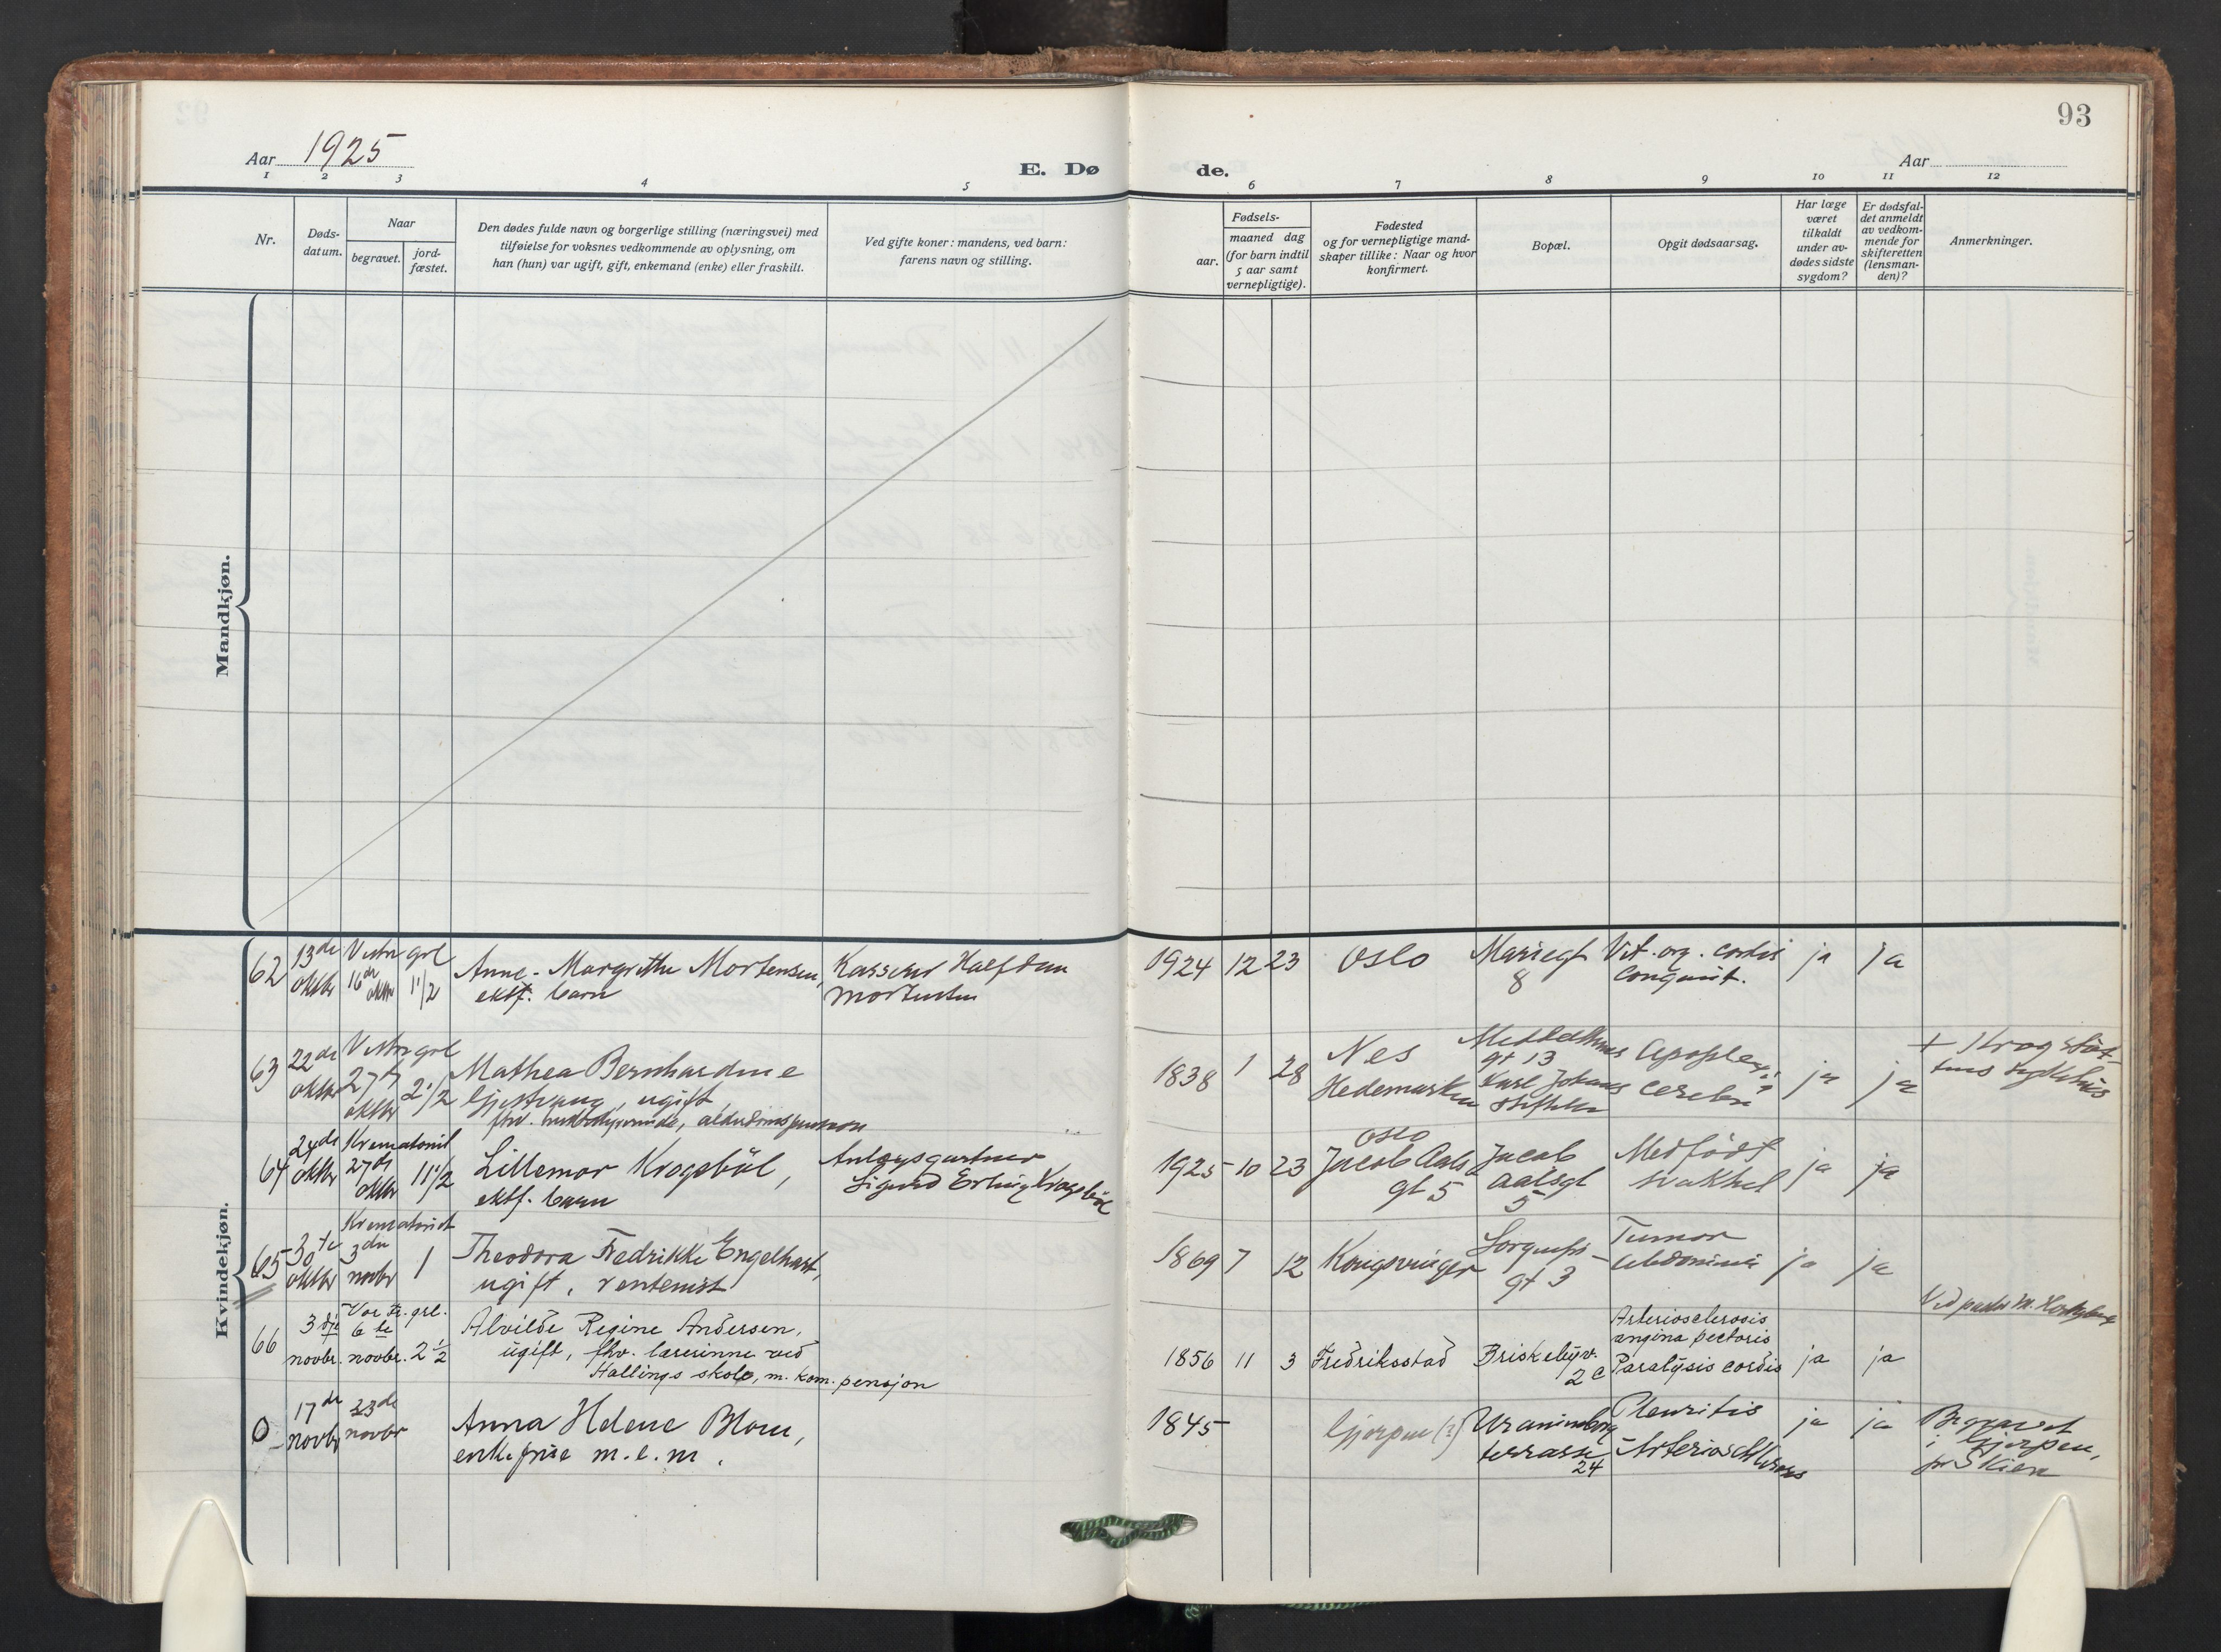 93
Aar 1925
E. Dø
de.
Aar
1 2 3 4 5 6 7 8 9 10 11 12
Nr.
Døds-
datum.
Naar
begravet.
jord-
fæstet.
Den dødes fulde navn og borgerlige stilling (næringsvei) med
tilføielse for voksnes vedkommende av oplysning, om
han (hun) var ugift, gift, enkemand (enke) eller fraskilt.
Ved gifte koner: mandens, ved barn:
farens navn og stilling.
Fødsels-
aar.
maaned dag
(for barn indtil
5 aar samt
vernepligtige).
Fødested
og for vernepligtige mand-
skaper tillike: Naar og hvor
konfirmert.
Bopæl.
Opgit dødsaarsag.
Har læge
været
tilkaldt
under av-
dødes sidste
sygdom?
Er dødsfal-
det anmeldt
av vedkom-
mende for
skifteretten
(lensman-
den)?
Anmerkninger.
Mandkjøn.
Kvindekjøn.
62
13de
oktbr
Vestre grl
16de
oktbr
1 1/2
Anne-Margrethe Mortensen,
ektf. barn
Kasserer Halfdan
Mortensen
1924 12 23
Oslo
Mariegt
8
Vit. org. cordis
congenit.
ja
ja
63
22de
oktbr
Vestre grl
27de
oktbr
2 1/2
Mathea Bernhardine
Gjestvang, ugift
fhv.
1838 1 28
Nes
Hedemarken
gt 13
Karl Johans
stiftelse
Apoplexi
cerebri
ja
ja
+ Krogstøt-
tens sykehus
64
24de
oktbr
Krematoriet
27de
oktbr
11 1/2
Lillemor Krogsböl,
ektf. barn
Anlegsgartner
Sigurd Erling Krogsböl
1925 10 23
Oslo
Jacob Aals
gt 5
Jacob
Aalsgt
5
Medfödt
svakhet
ja
ja
65
30te
oktbr
Krematoriet
3die
novbr
1
Theodora Fredrikke Engelhart,
ugift, rentenist
1869 7 12
Kongsvinger
Sorgenfri-
gt 3
Tumor
abdominis
ja
ja
66
3dje
novbr.
Vor Fr. grl.
6te
novbr.
2 1/2
Alvilde Regine Andersen,
ugift, fhv. lærerinne ved
Hallings skole, m. kom. pensjon
1856 11 3
Fredriksstad
Briskebyv.
2 c
Arteriosclerosis
angina pectoris
Paralysis cordis
ja
ja
Ved pastor M.
0
17de
novbr
23de
novbr
Anna Helene Blom,
enkefrue m.e.m.
1845
Gjerpen (?)
Uranienborg
terrasse
24
Pleuritis
Arteriosclerosis
ja
ja
Begravet
i Gjerpen,
pr Skien